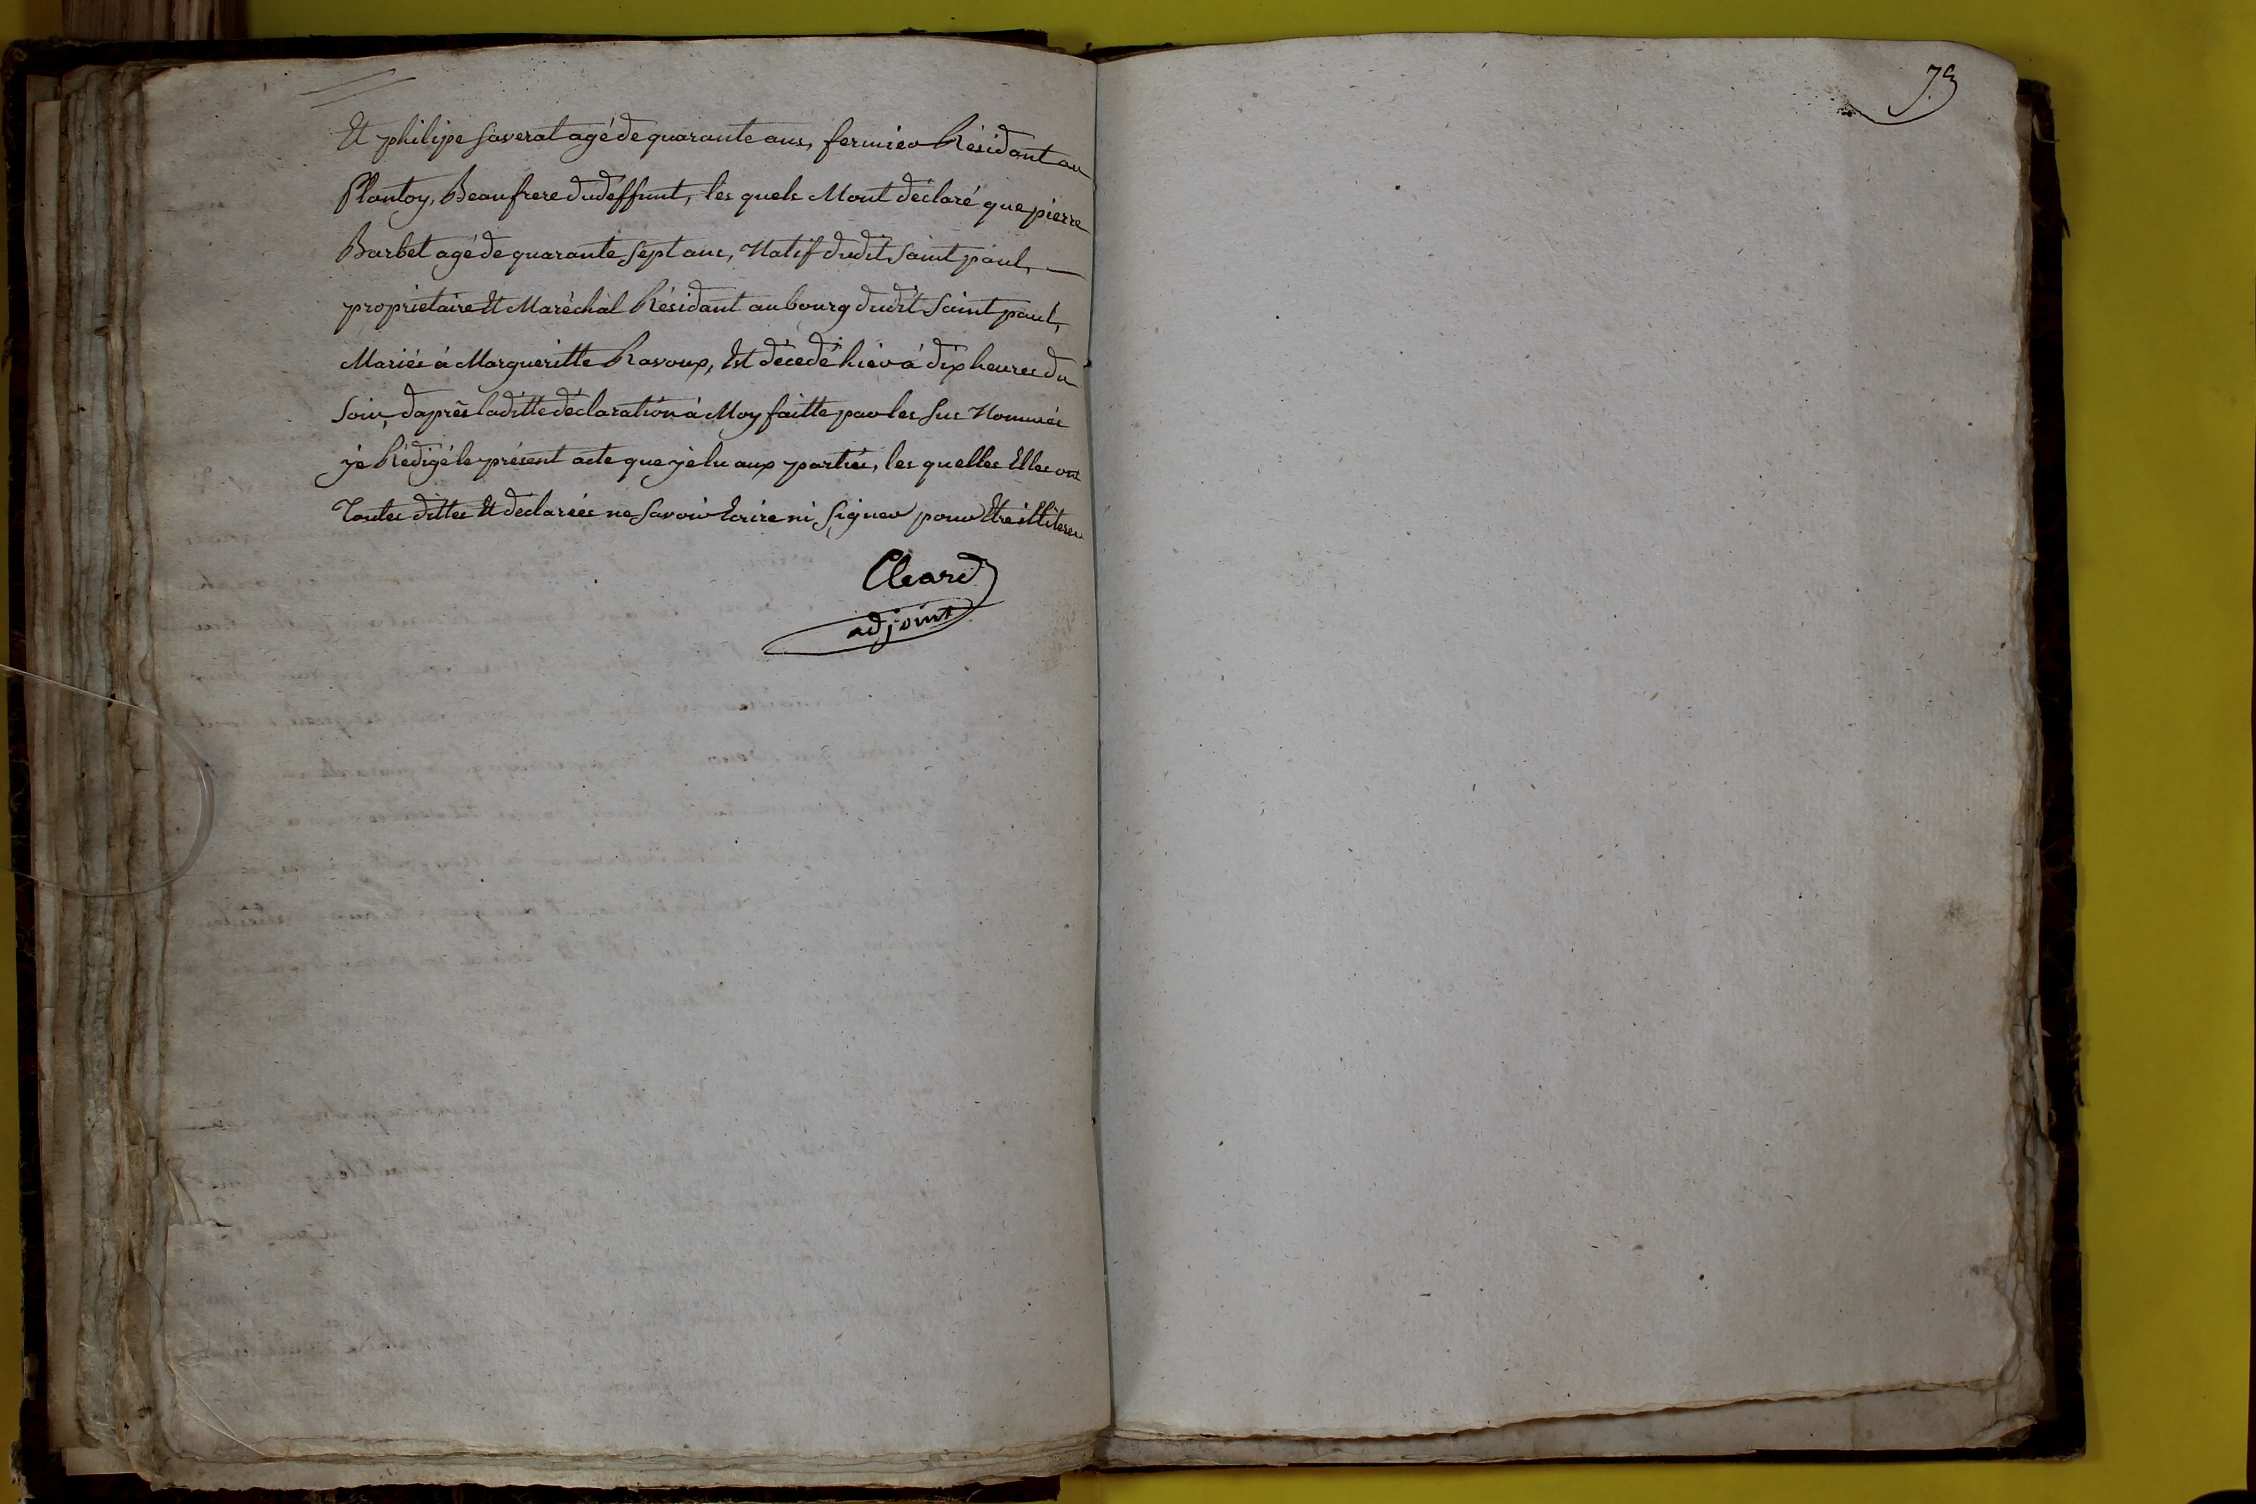 Et philipe Saverat agé de quarante ans, fermier Résidant au
Plantoy, Beaufrere du déffunt, les quels Mont déclaré que pierre
Barbet agé de quarante Sept ans, Natif dudit Saint paul,
proprietaire Et Maréchal Résidant au bourg dudit Saint paul,
Mariée á Margueritte Ravoux, Est décedé hier á dix heures du
Soir, daprès laditte déclaration á Moy faitte par les Sus Nommés
j'e Rédigé le présent acte que j'e lu aux parties, les quelles Elles ont
Toutes dittes Et déclarées ne Savoir Ecrire ni Signer pour Etre illiteres
Cleard
adjoint